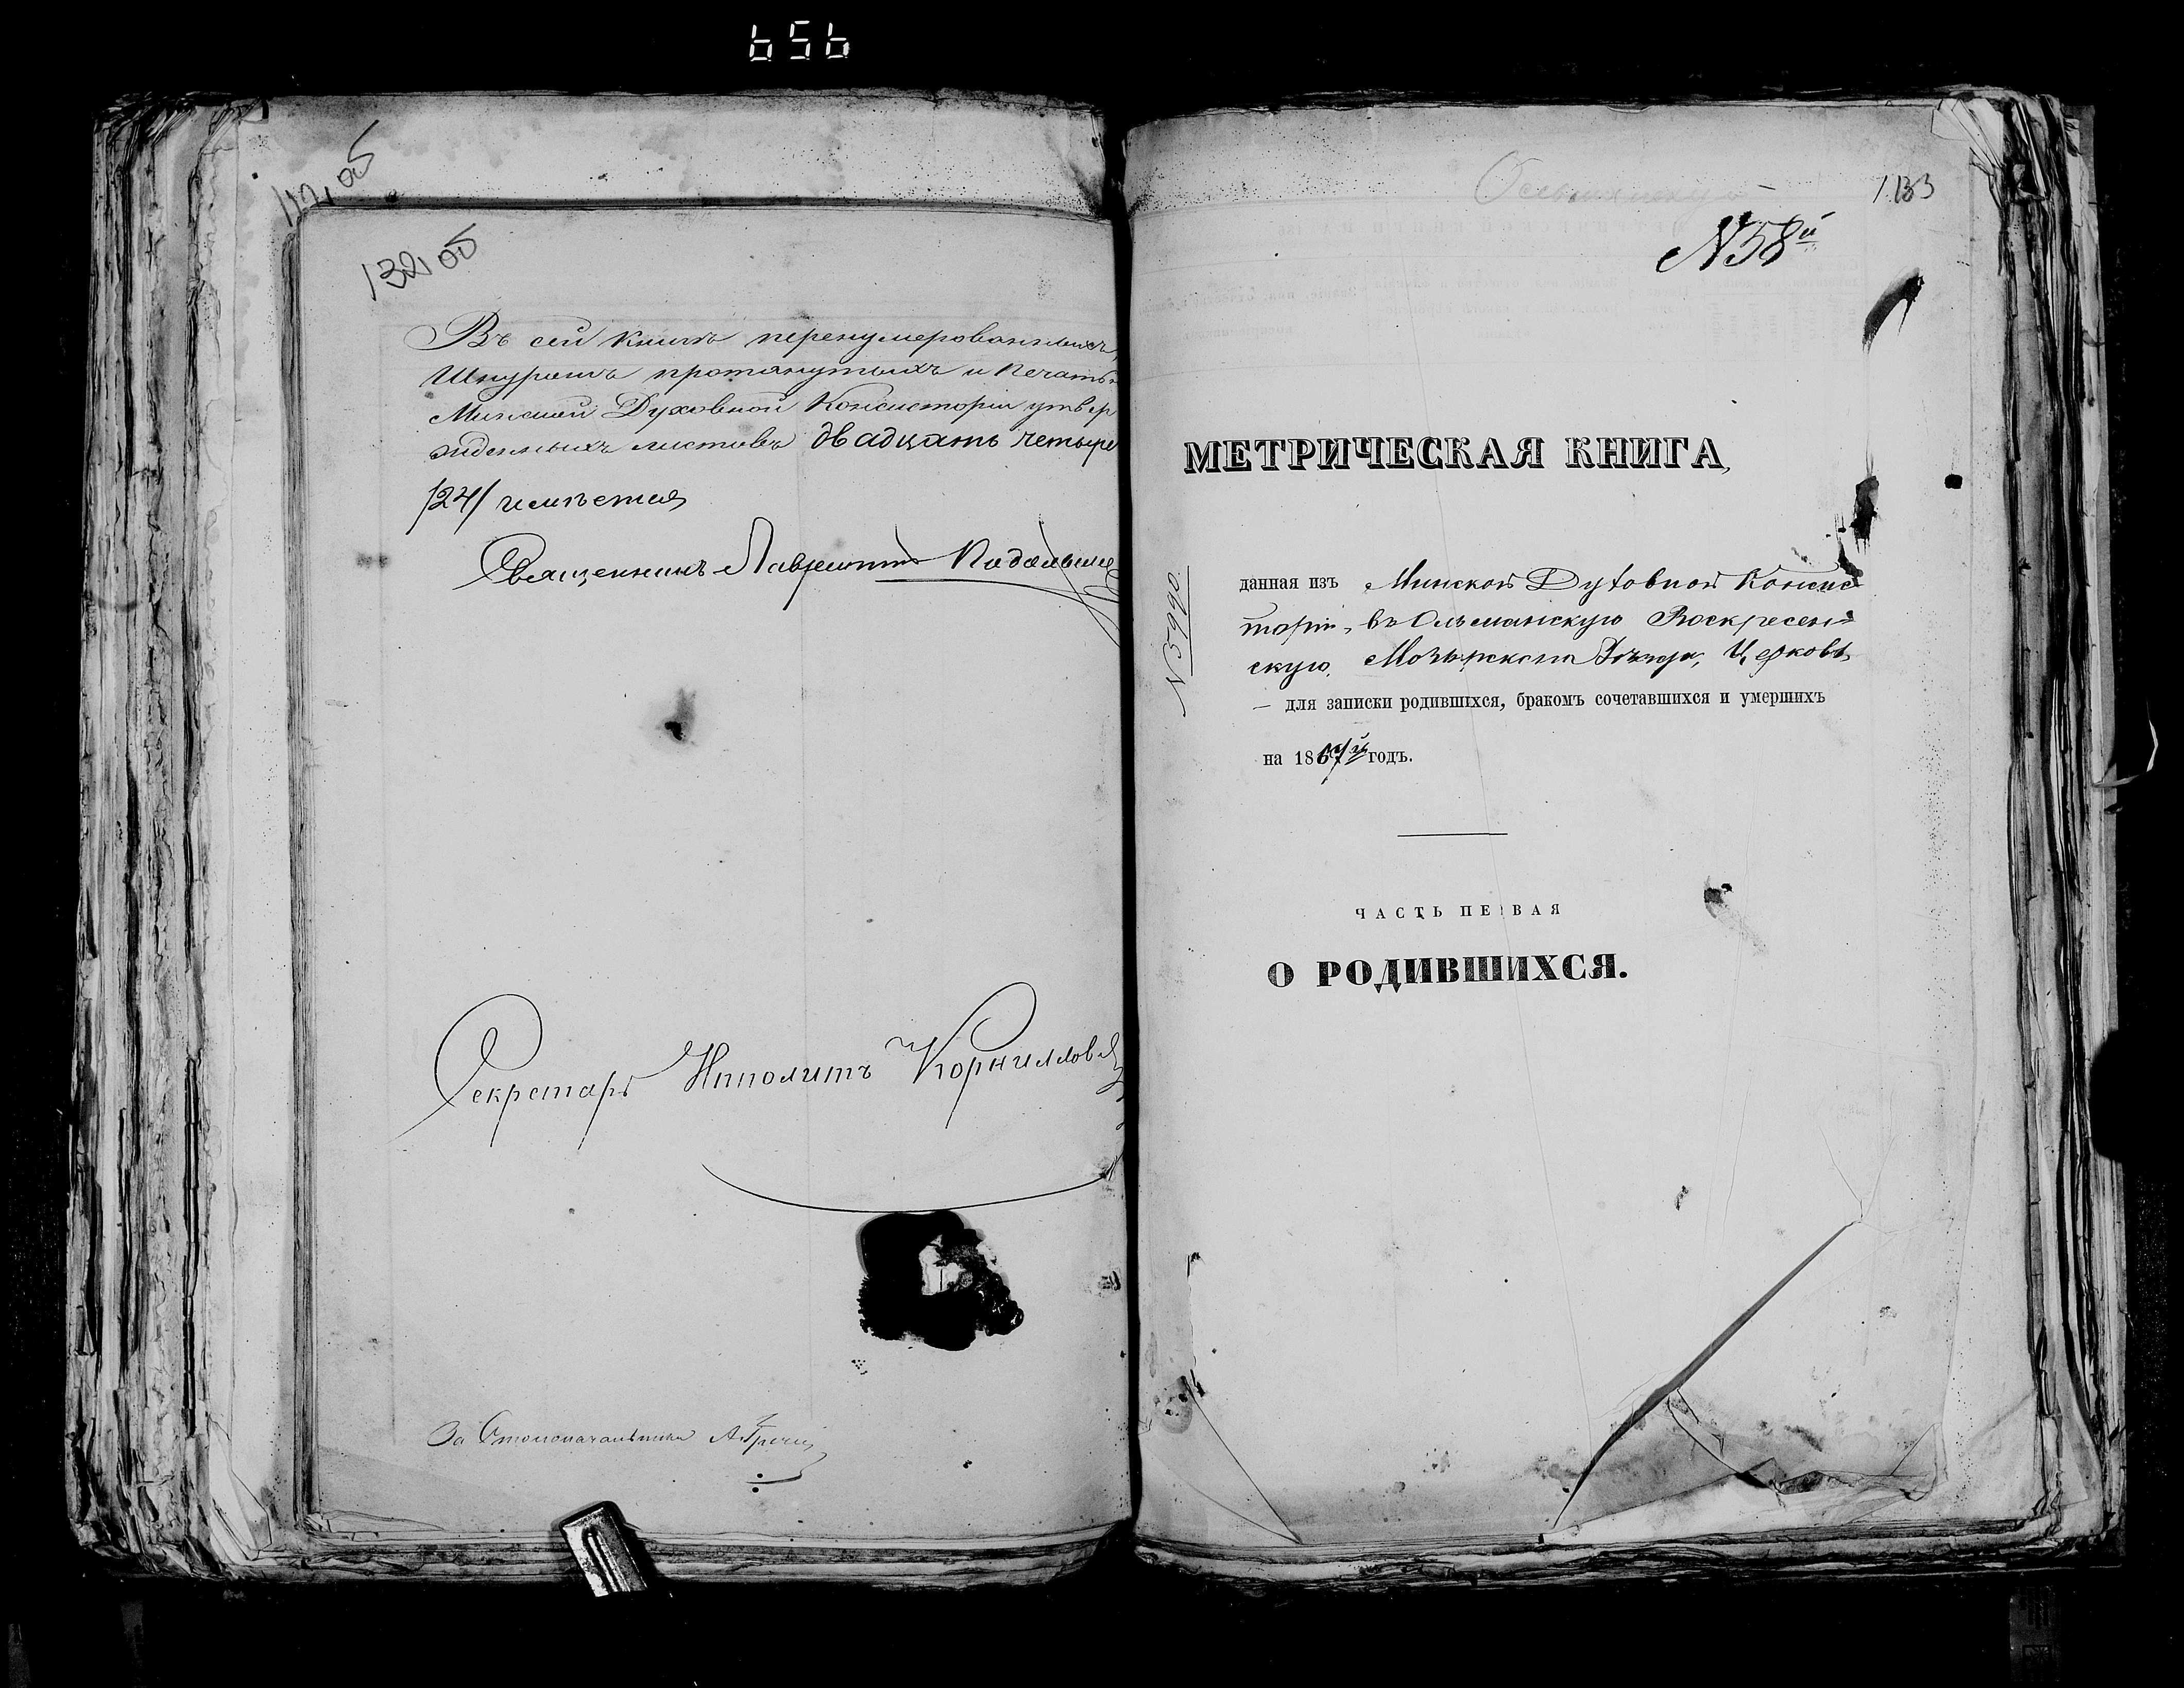 656
132 об
132 об
Въ сей книгѣ перенумерованныхъ,
Шнуромъ протянутыхъ и печатью
Минской Духовной Консисторіи утвер
жденныхъ листовъ двадцать четыре
/24/
Священникъ Лаврентій
Секретарь Ипполитъ Корниллов
За Столоначальника
133
N 58й
МЕТРИЧЕСКАЯ КНИГА,
N 5990
данная изъ Минской Духовной Консис
торіи, въ Ольманскую Воскресен
скую, Мозырскаго Уѣзда, Церковь
— для записки родившихся, бракомъ сочетавшихся и умершихъ
на 1867й годъ.
ЧАСТЬ ПЕРВАЯ
О РОДИВШИХСЯ.